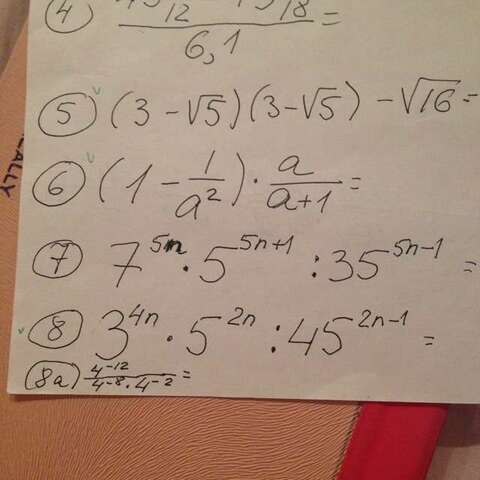 ④ 12 18 / 6,1 =
⑤ (3 - √5)(3 - √5) - √16 =
⑥ (1 - 1/a²) · a/(a+1) =
⑦ 7^(5n) · 5^(5n+1) : 35^(5n-1) =
⑧ 3^(4n) · 5^(2n) : 45^(2n-1) =
(8a) 4^(-12) / (4^(-8) · 4^(-2)) =
ALLY